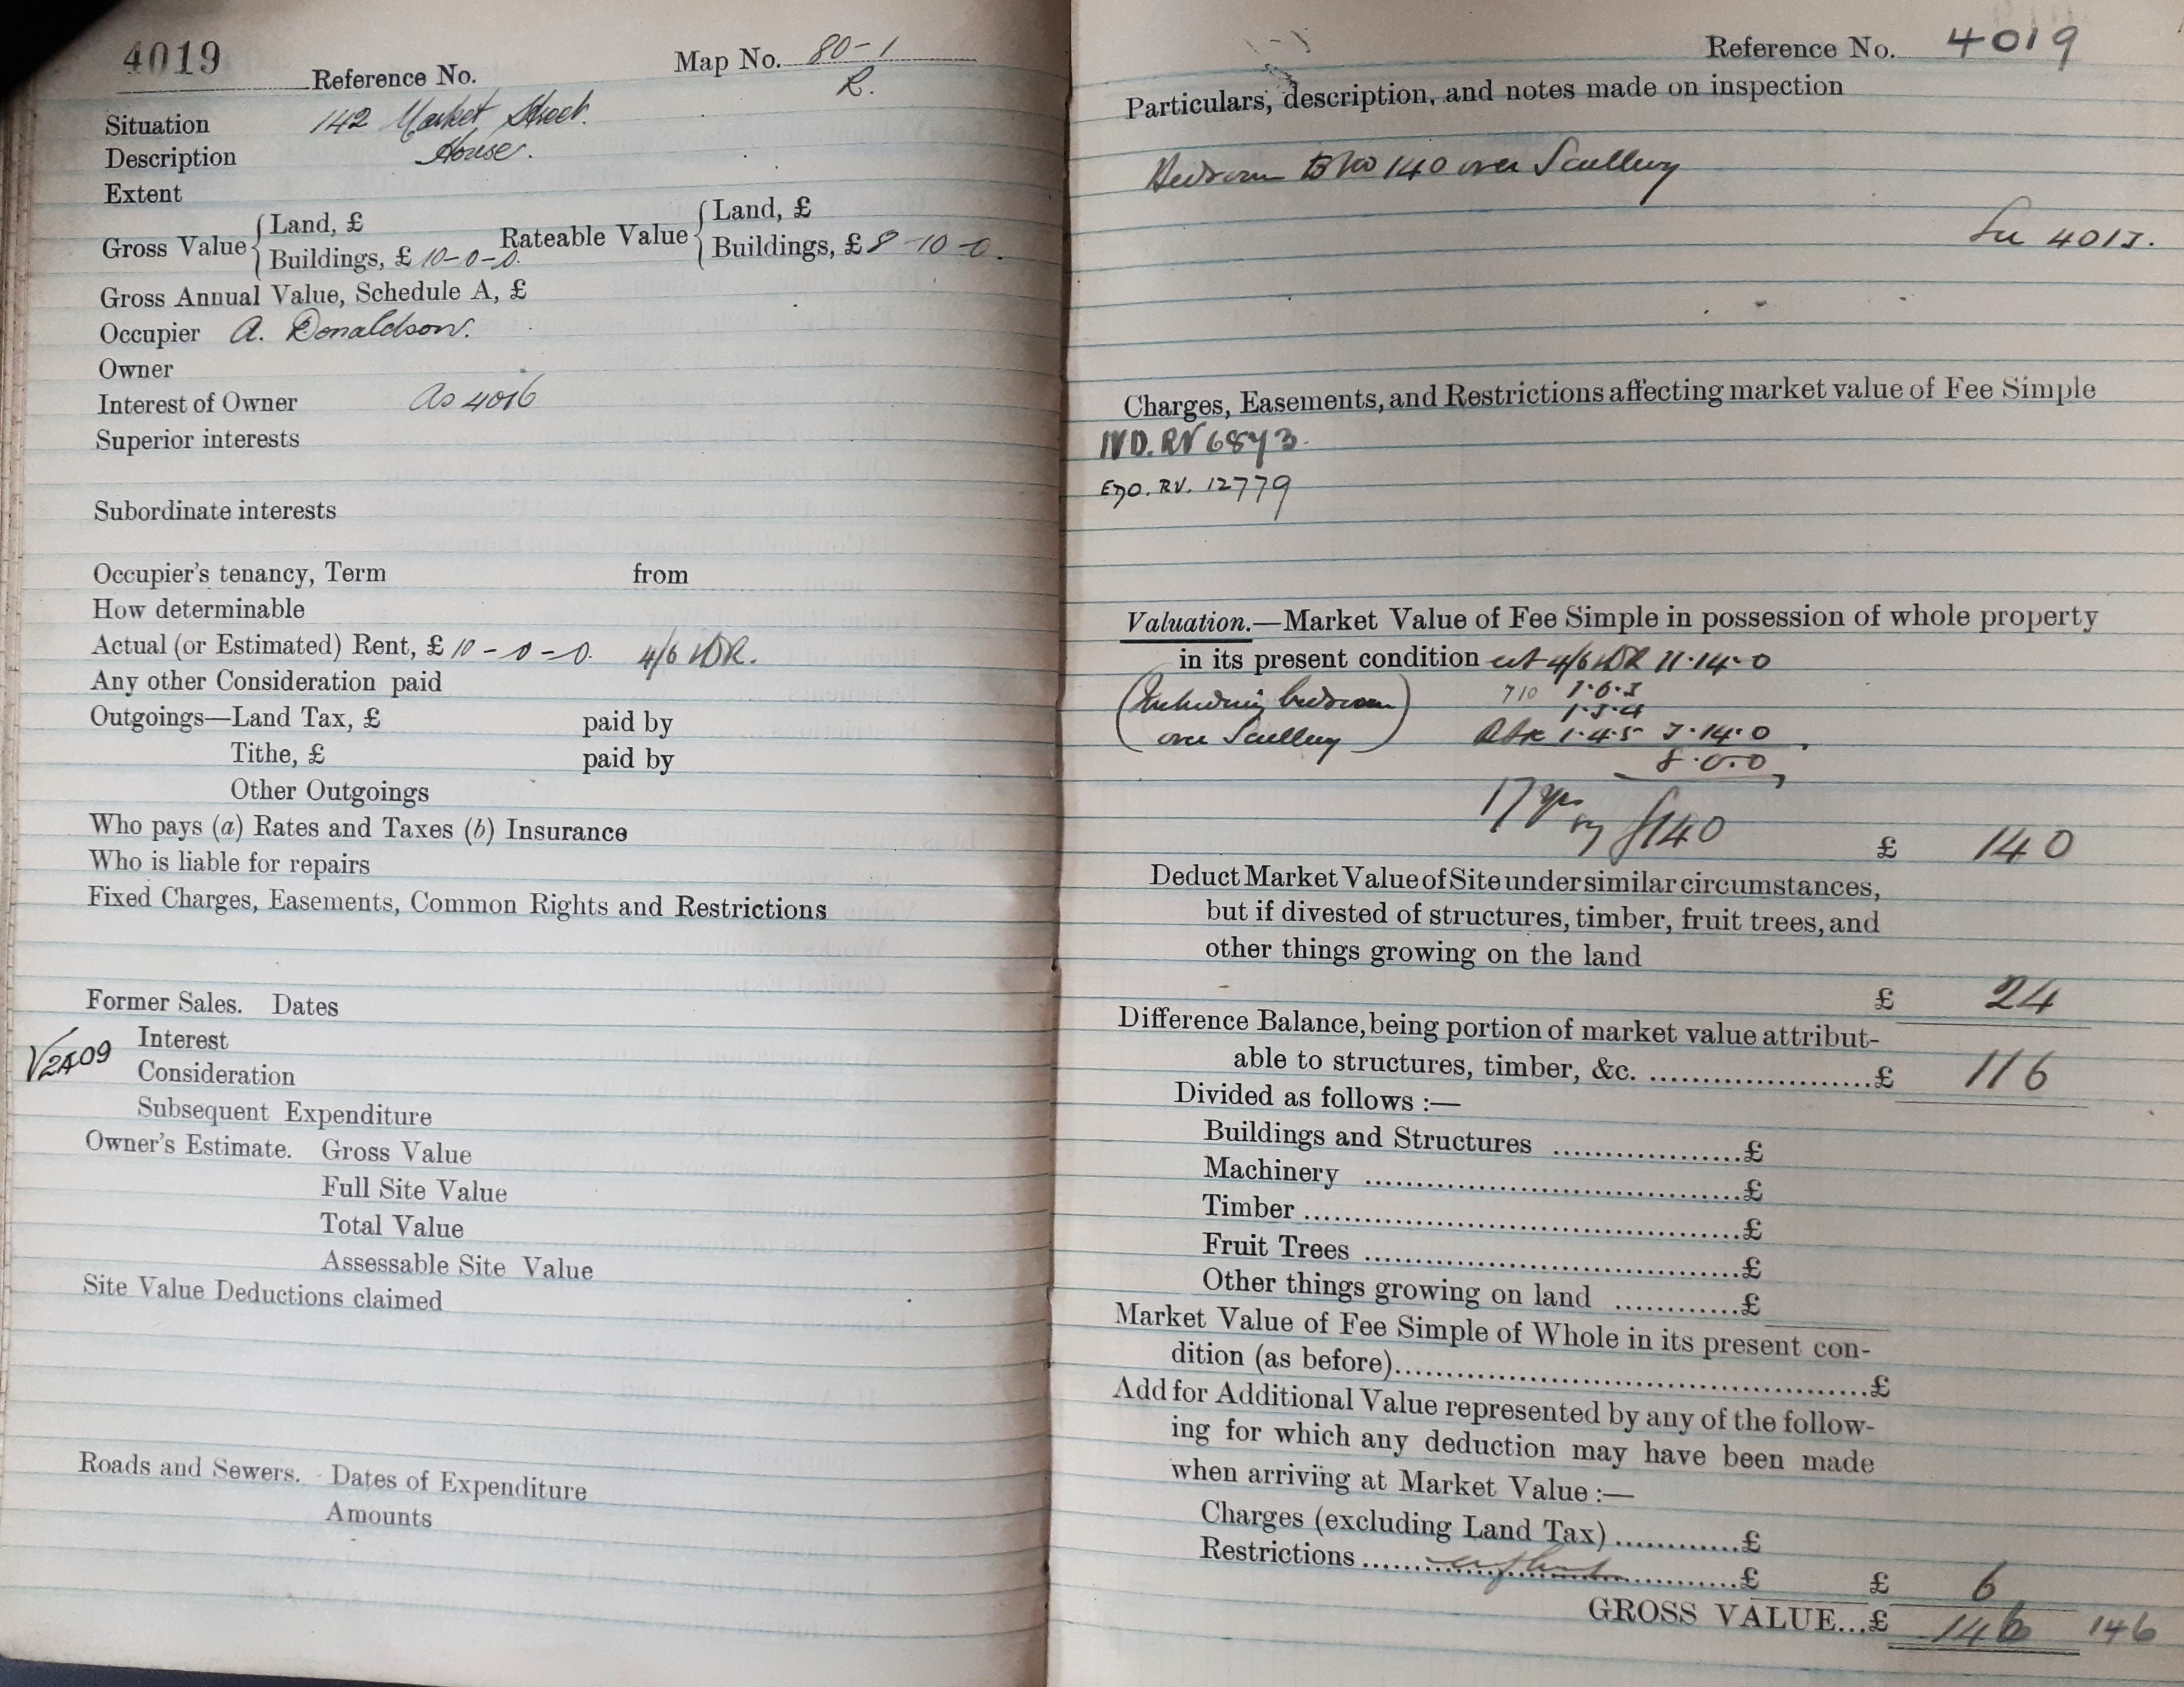 4019 Reference No. Map No. 80-1
R.
Situation 142 Market Street.
Description House.
Extent
Gross Value { Land, £
Buildings, £ 10-0-0. Rateable Value { Land, £
Buildings, £ 8-10-0.
Gross Annual Value, Schedule A, £
Occupier A. Donaldson.
Owner
Interest of Owner As 4016
Superior interests
Subordinate interests
Occupier's tenancy, Term from
How determinable
Actual (or Estimated) Rent, £ 10-0-0. 4/6
Any other Consideration paid
Outgoings—Land Tax, £ paid by
Tithe, £ paid by
Other Outgoings
Who pays (a) Rates and Taxes (b) Insurance
Who is liable for repairs
Fixed Charges, Easements, Common Rights and Restrictions
Former Sales. Dates
Interest
Consideration
Subsequent Expenditure
Owner's Estimate. Gross Value
Full Site Value
Total Value
Assessable Site Value
Site Value Deductions claimed
Roads and Sewers. Dates of Expenditure
Amounts
Reference No. 4019
Particulars, description, and notes made on inspection
Bedroom to No 140 over Scullery
Charges, Easements, and Restrictions affecting market value of Fee Simple
RV 6873.
RV. 12779
Valuation.—Market Value of Fee Simple in possession of whole property
in its present condition at 4/6 11.14.0
(Including bedroom
over Scullery)
1.4.5 3.14.0
8.0.0
17 yrs £140
£ 140
Deduct Market Value of Site under similar circumstances,
but if divested of structures, timber, fruit trees, and
other things growing on the land
£ 24
Difference Balance, being portion of market value attribut-
able to structures, timber, &c. ......................£ 116
Divided as follows :—
Buildings and Structures ..................£
Machinery ....................................£
Timber ..........................................£
Fruit Trees ....................................£
Other things growing on land ............£
Market Value of Fee Simple of Whole in its present con-
dition (as before)..............................................£
Add for Additional Value represented by any of the follow-
ing for which any deduction may have been made
when arriving at Market Value :—
Charges (excluding Land Tax) ............£
Restrictions ....................................£ £ 6
GROSS VALUE...£ 146 146